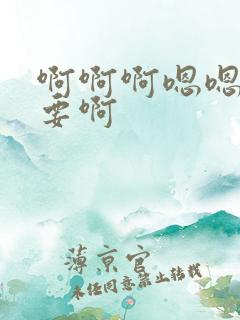 啊啊啊嗯嗯
要啊
薄京官
未经同意禁止转载